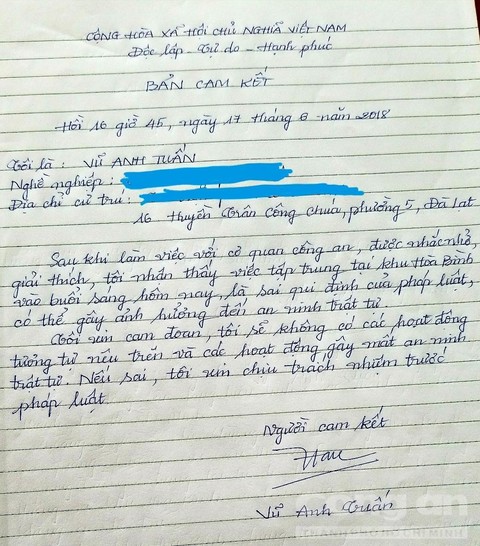 CỘNG HÒA XÃ HỘI CHỦ NGHĨA VIỆT NAM
Độc lập - Tự do - Hạnh phúc
BẢN CAM KẾT
Hồi 16 giờ 45, ngày 17 tháng 6 năm 2018
Tôi là : VŨ ANH TUẤN
Nghề nghiệp :
Địa chỉ cư trú :
16 Huyền Trân Công Chúa, phường 5, Đà Lạt
Sau khi làm việc với cơ quan công an, được nhắc nhở,
giải thích, tôi nhận thấy việc tập trung tại khu Hòa Bình
vào buổi sáng hôm nay, là sai qui định của pháp luật,
có thể gây ảnh hưởng đến an ninh trật tự.
Tôi xin cam đoan, tôi sẽ không có các hoạt động
tương tự nêu trên và các hoạt động gây mất an ninh
trật tự. Nếu sai, tôi xin chịu trách nhiệm trước
pháp luật
Người cam kết
Vũ Anh Tuấn
công an
THÀNH PHỐ HỒ CHÍ MINH